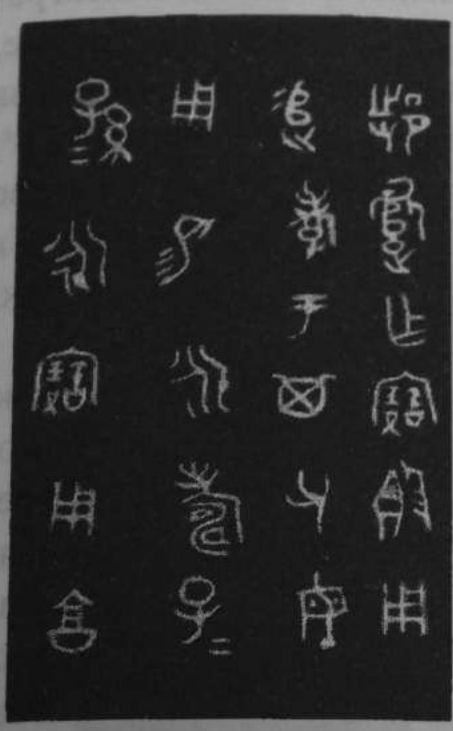 邿遣乍寶𣪘用
追孝于其父母
用易永壽子₌
孫₌永寶用享